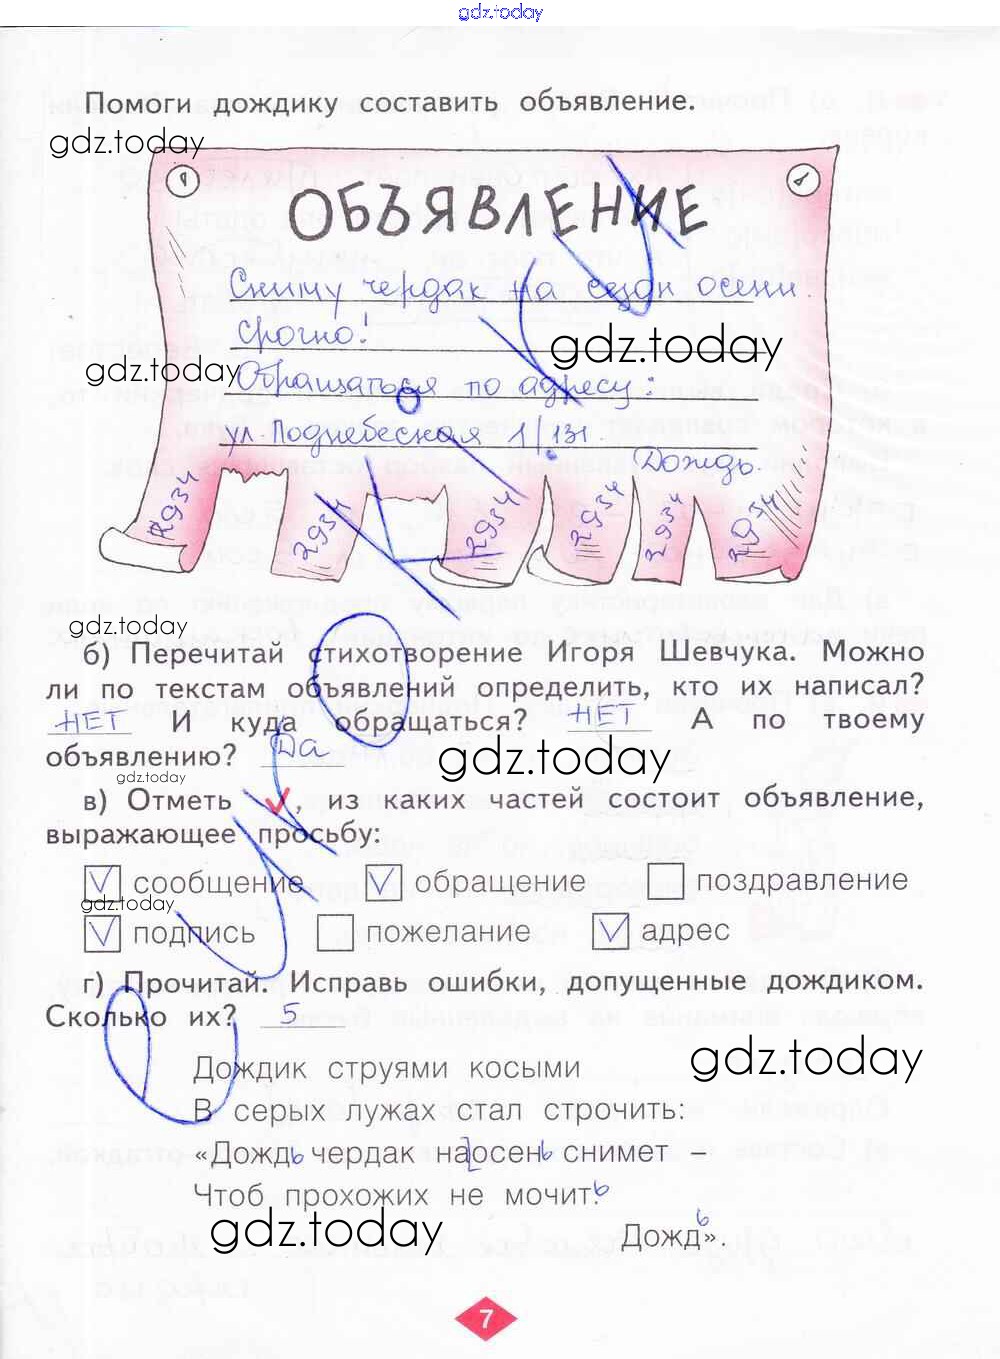 gdz.today
Помоги дождику составить объявление.
gdz.today
ОБЪЯВЛЕНИЕ
Сниму чердак на сезон осени
срочно!
gdz.today
gdz.today
Обращаться по адресу:
ул. Поднебесная 1/131.
Дождь.
2934 2934 2934 2934 2934 2934
gdz.today
б) Перечитай стихотворение Игоря Шевчука. Можно
ли по текстам объявлений определить, кто их написал?
НЕТ И куда обращаться? НЕТ А по твоему
объявлению? Да
gdz.today
gdz.today
в) Отметь √, из каких частей состоит объявление,
выражающее просьбу:
√ сообщение √ обращение поздравление
gdz.today
√ подпись пожелание √ адрес
г) Прочитай. Исправь ошибки, допущенные дождиком.
Сколько их? 5
gdz.today
Дождик струями косыми
В серых лужах стал строчить:
«Дождь чердак на осень снимет –
Чтоб прохожих не мочить.
gdz.today
Дождь».
7